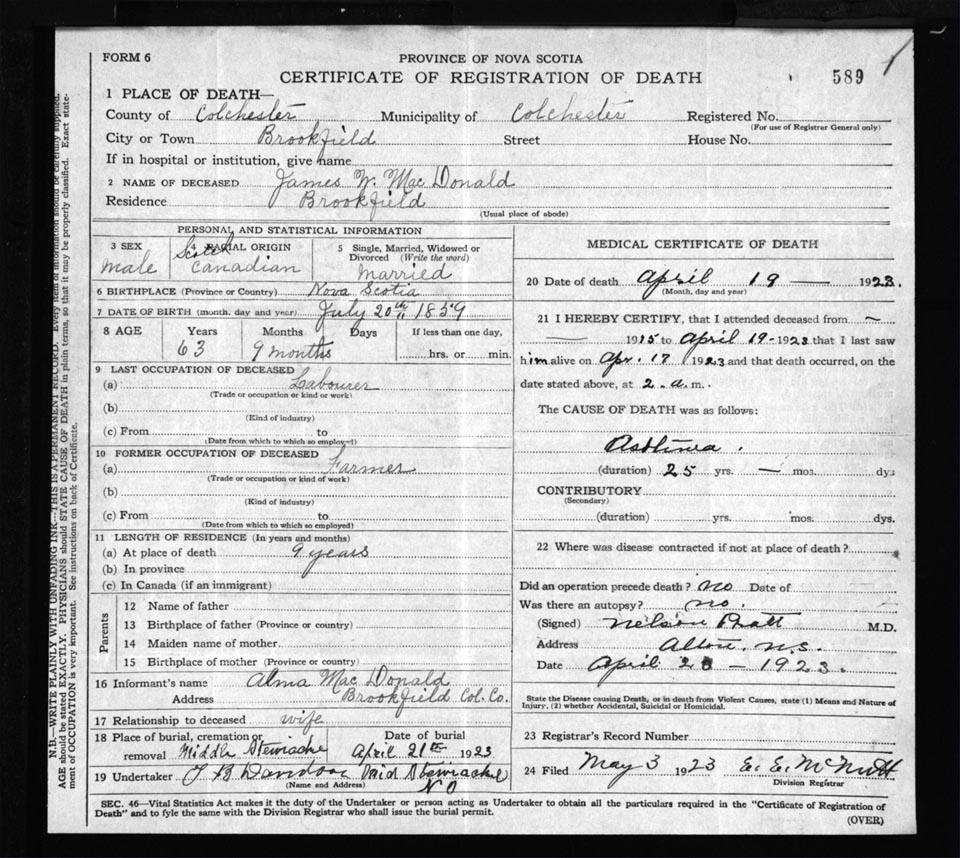 FORM 6
PROVINCE OF NOVA SCOTIA
CERTIFICATE OF REGISTRATION OF DEATH
589
1 PLACE OF DEATH—
County of Colchester Municipality of Colchester Registered No.
(For use of Registrar General only)
City or Town Brookfield Street House No.
If in hospital or institution, give name
2 NAME OF DECEASED James W. Mac Donald
Residence Brookfield
(Usual place of abode)
PERSONAL AND STATISTICAL INFORMATION
3 SEX
Male
4 RACIAL ORIGIN
Scotch
Canadian
5 Single, Married, Widowed or Divorced (Write the word)
Married
6 BIRTHPLACE (Province or Country) Nova Scotia
7 DATE OF BIRTH (month, day and year) July 20th 1859
8 AGE Years Months Days If less than one day,
63 9 months hrs. or min.
9 LAST OCCUPATION OF DECEASED
(a) Labourer
(Trade or occupation or kind or work)
(b)
(Kind of industry)
(c) From to
(Date from which to which so employed)
10 FORMER OCCUPATION OF DECEASED
(a) Farmer
(Trade or occupation or kind of work)
(b)
(Kind of industry)
(c) From to
(Date from which to which so employed)
11 LENGTH OF RESIDENCE (In years and months)
(a) At place of death 9 years
(b) In province
(c) In Canada (if an immigrant)
Parents
12 Name of father
13 Birthplace of father (Province or country)
14 Maiden name of mother
15 Birthplace of mother (Province or country)
16 Informant's name Alma Mac Donald
Address Brookfield Col. Co.
17 Relationship to deceased wife
18 Place of burial, cremation or Date of burial
removal Middle Stewiacke April 21st 1923
19 Undertaker
(Name and Address)
MEDICAL CERTIFICATE OF DEATH
20 Date of death April 19 — 1923.
(Month, day and year)
21 I HEREBY CERTIFY, that I attended deceased from —
— 1915 to April 19 - 1923 that I last saw
him alive on Apr. 17 1923 and that death occurred, on the
date stated above, at 2 a.m.
The CAUSE OF DEATH was as follows:
Asthma.
(duration) 25 yrs. — mos. dys
CONTRIBUTORY
(Secondary)
(duration) yrs. mos. dys.
22 Where was disease contracted if not at place of death?
Did an operation precede death? no Date of
Was there an autopsy? no.
(Signed) Nelson Pratt M.D.
Address Alton, N.S.
Date April - 1923.
State the Disease causing Death, or in death from Violent Causes, state (1) Means and Nature of
Injury, (2) whether Accidental, Suicidal or Homicidal.
23 Registrar's Record Number
24 Filed May 3 1923 E. E. McNutt
Division Registrar
SEC. 46—Vital Statistics Act makes it the duty of the Undertaker or person acting as Undertaker to obtain all the particulars required in the "Certificate of Registration of
Death" and to fyle the same with the Division Registrar who shall issue the burial permit.
(OVER)
N.B.—WRITE PLAINLY WITH UNFADING INK—THIS IS A PERMANENT RECORD. Every item of information should be carefully supplied.
AGE should be stated EXACTLY. PHYSICIANS should STATE CAUSE OF DEATH in plain terms, so that it may be properly classified. Exact state-
ment of OCCUPATION is very important. See instructions on back of Certificate.